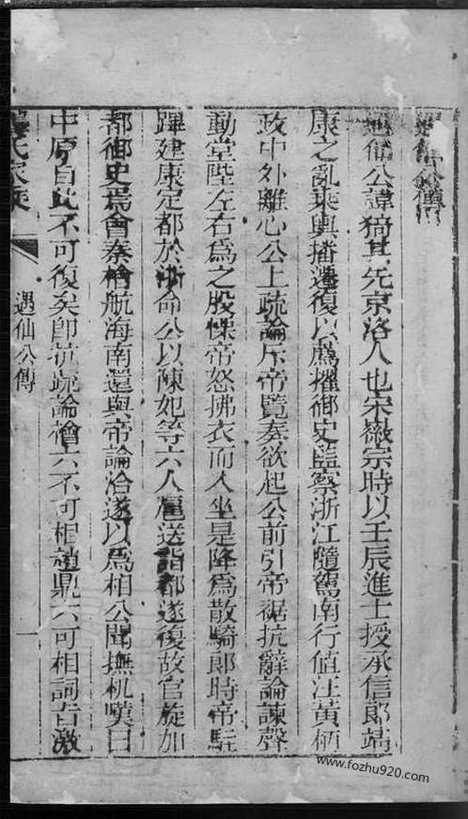 遇仙公傳
遇仙公諱猗其先京洛人也宋徽宗時以壬辰進士授承信郎靖
康之亂乘輿播遷復以薦擢御史監察浙江隨駕南行值汪黃柄
政中外離心公上疏論斥帝覽奏欲起公前引帝裾抗辭論諫聲
動堂陛左右為之股慄帝怒拂衣而入坐是降為散騎郎時帝駐
蹕建康定都於浙命公以陳妃等六人扈送詣都遂復故官旋加
都御史焉會秦檜航海南還與帝論洽遂以為相公聞撫机嘆曰
中原自此不可復矣即抗疏論檜六不可相趙鼎六可相詞旨激
氏家乘
遇仙公傳
一
www.fozhu920.com